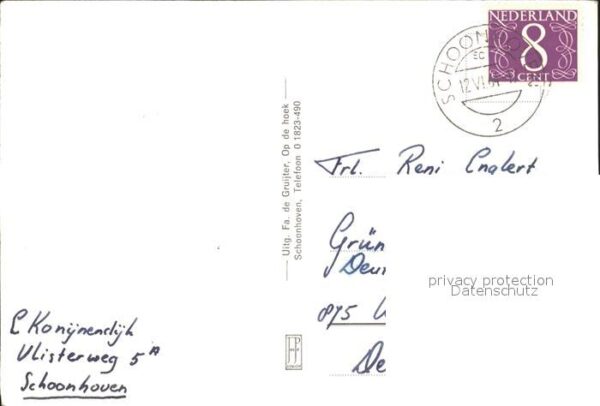 NEDERLAND
8
CENT
SCHOONHO
12 VI
2
Uitg. Fa. de Gruijter, Op de hoek
Schoonhoven, Telefoon 0 1823-490
Frl. Reni Englert
Grün
875
De
privacy protection
Datenschutz
L Konijnendijk
Vlisterweg 5A
Schoonhoven